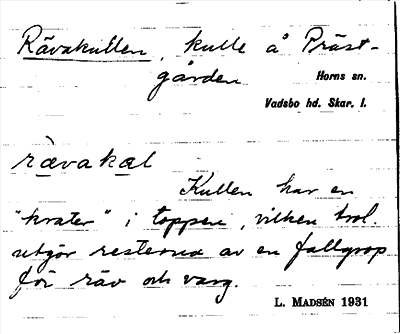 Rävakullen, kulle å Präst-
gården
Horns sn.
Vadsbo hd. Skar. l.
rävakal
Kullen har en
"krater" i toppen, vilken trol.
utgör resterna av en fallgrop
för räv och varg.
L. MADSÉN 1931